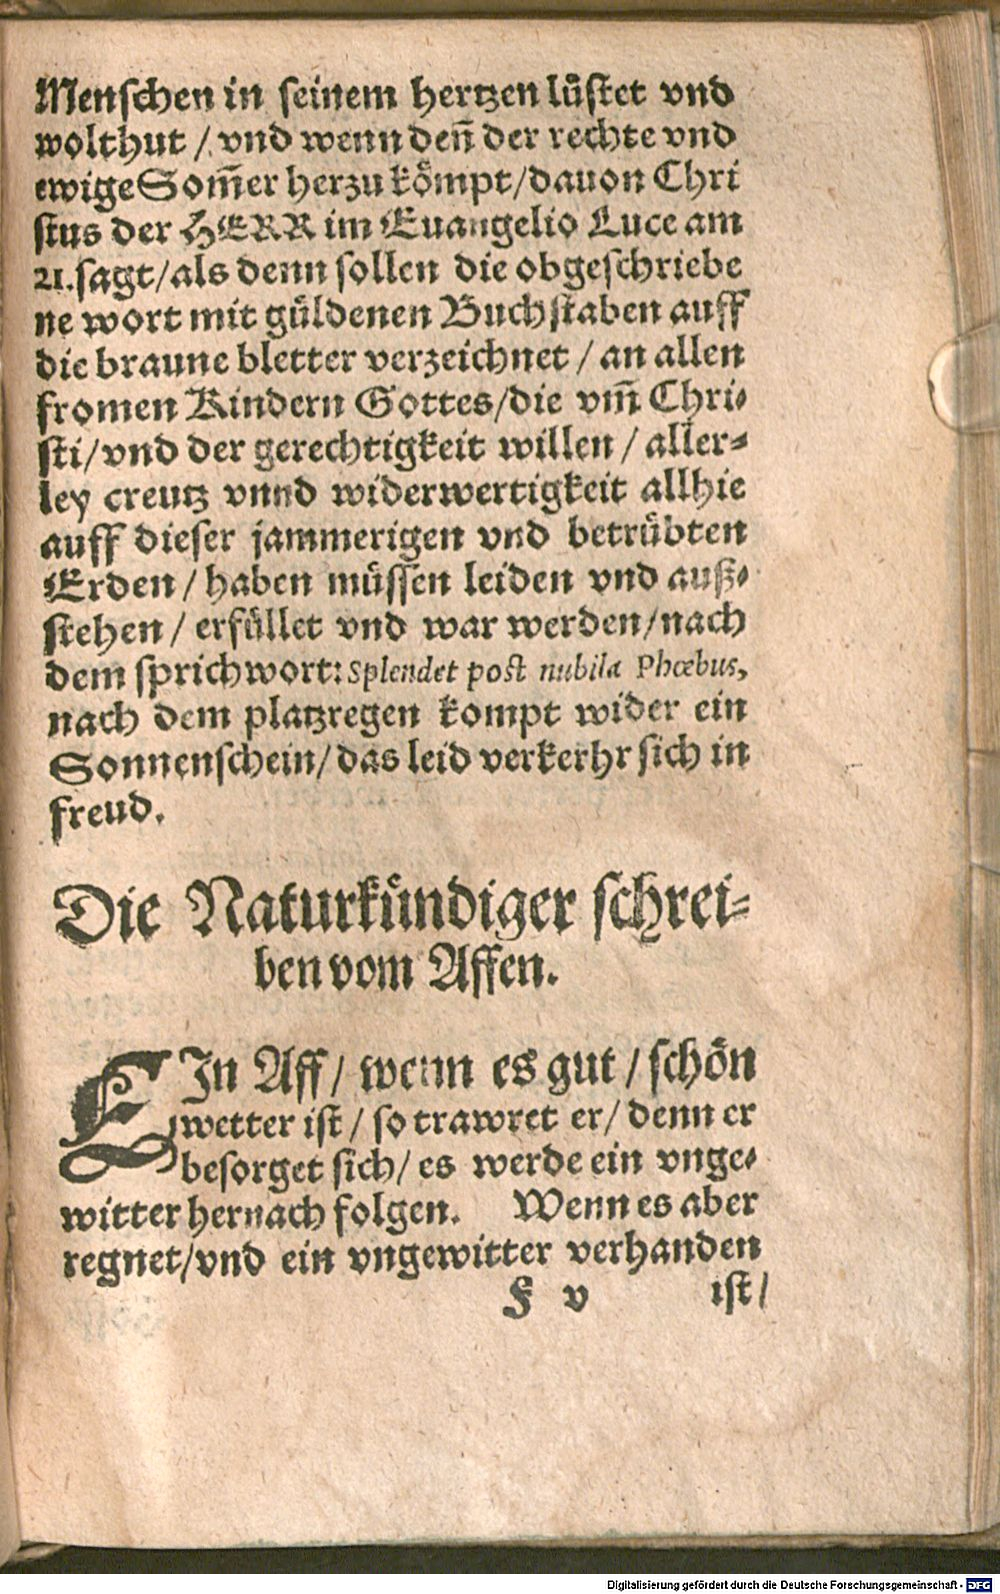 Menschen in seinem hertzen lüstet vnd
wolthut / vnd wenn deñ der rechte vnd
ewige Som̃er herzu kömpt / dauon Chri
stus der HERR im Euangelio Luce am
21. sagt / als denn sollen die obgeschriebe
ne wort mit güldenen Buchstaben auff
die braune bletter verzeichnet / an allen
fromen Kindern Gottes / die vm̃ Chri-
sti / vnd der gerechtigkeit willen / aller-
ley creutz vnnd widerwertigkeit allhie
auff dieser jammerigen vnd betrübten
Erden / haben müssen leiden vnd auß-
stehen / erfüllet vnd war werden / nach
dem sprichwort: Splendet post nubila Phœbus,
nach dem platzregen kompt wider ein
Sonnenschein / das leid verkerhr sich in
freud.
Die Naturkündiger schrei-
ben vom Affen.
EIn Aff / wenn es gut / schön
wetter ist / so trawret er / denn er
besorget sich / es werde ein vnge-
witter hernach folgen. Wenn es aber
regnet / vnd ein vngewitter verhanden
F v ist /
Digitalisierung gefördert durch die Deutsche Forschungsgemeinschaft - DFG